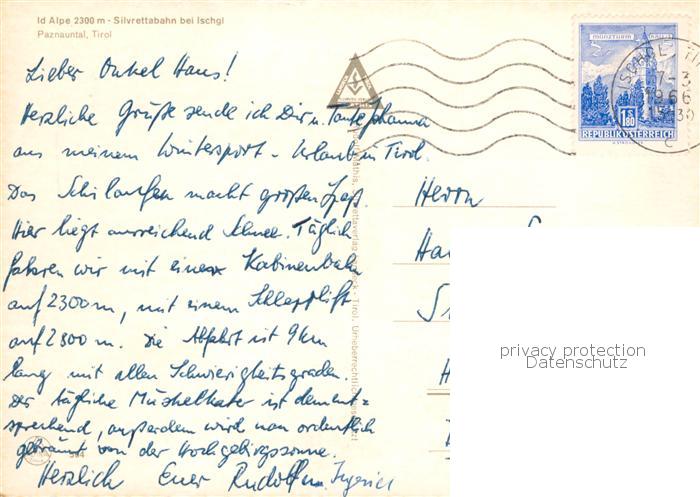 Id Alpe 2300 m - Silvrettabahn bei Ischgl
Paznauntal, Tirol
Lieber Onkel Hans!
Herzliche Grüße sende ich Dir u. Tante Johanna
aus meinem Wintersport-Urlaub in Tirol.
Das Schilaufen macht großen Spaß.
Hier liegt ausreichend Schnee. Täglich
fahren wir mit einer Kabinenbahn
auf 2300 m, mit einem Schlepplift
auf 2800 m. Die Abfahrt ist 9 km
lang mit allen Schwierigkeitsgraden.
Der tägliche Muskelkater ist dement=
sprechend, außerdem wird man ordentlich
gebräunt von der Hochgebirgssonne.
Herzlich Euer Rudolf u.
Herrn
MÜNZTURM
1966
S 1.80
REPUBLIK ÖSTERREICH
privacy protection
Datenschutz